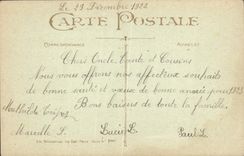 Le 29 Décembre 1922
CARTE POSTALE
CORRESPONDANCE
ADRESSE
Chers Oncle Tante et Cousins
Nous vous offrons nos affectueux souhaits
de bonne santé et vœux de bonne année pour 1923
Bons baisers de toute la famille.
Marcelle L. Lucie L. Paul L.